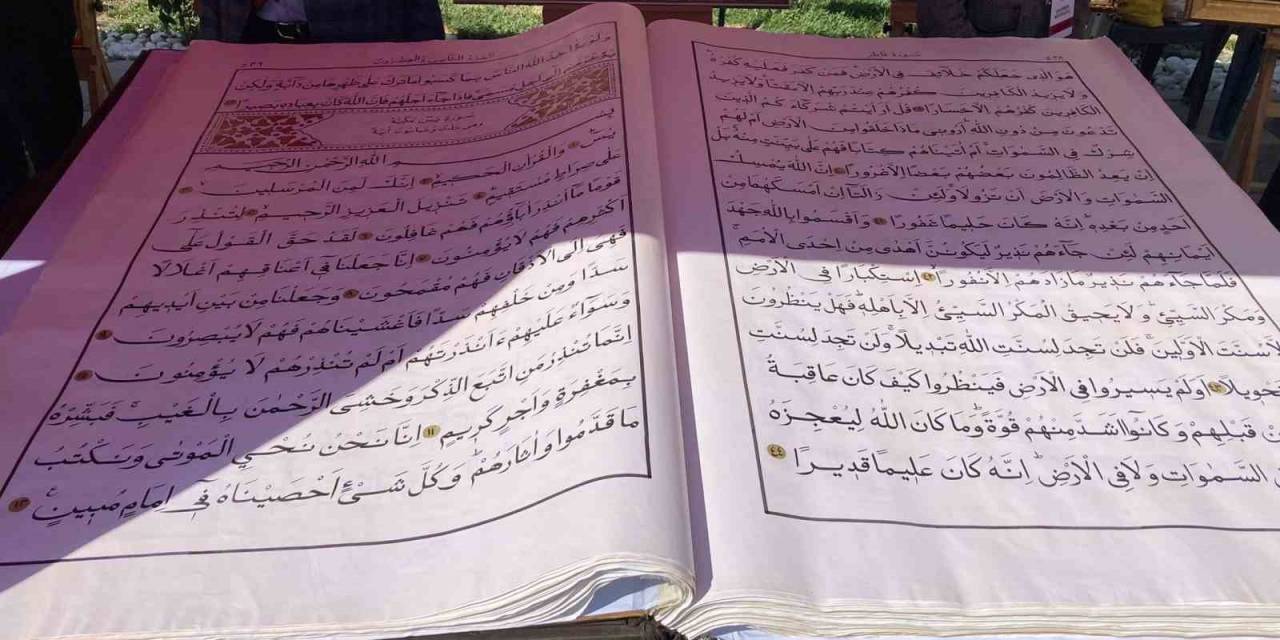 سُورَةُ فَاطِرٍ ٤٣٨
هُوَ الَّذٖى جَعَلَكُمْ خَلَٓائِفَ فِى الْاَرْضِ فَمَنْ كَفَرَ فَعَلَيْهِ كُفْرُهُ
وَلَا يَزٖيدُ الْكَافِرٖينَ كُفْرُهُمْ عِنْدَ رَبِّهِمْ اِلَّا مَقْتًا وَلَا يَزٖيدُ
الْكَافِرٖينَ كُفْرُهُمْ اِلَّا خَسَارًا قُلْ اَرَاَيْتُمْ شُرَكَٓاءَكُمُ الَّذٖينَ
تَدْعُونَ مِنْ دُونِ اللّٰهِ اَرُونٖى مَاذَا خَلَقُوا مِنَ الْاَرْضِ اَمْ لَهُمْ
شِرْكٌ فِى السَّمٰوَاتِ اَمْ اٰتَيْنَاهُمْ كِتَابًا فَهُمْ عَلٰى بَيِّنَتٍ مِنْهُ بَلْ
اِنْ يَعِدُ الظَّالِمُونَ بَعْضُهُمْ بَعْضًا اِلَّا غُرُورًا اِنَّ اللّٰهَ يُمْسِكُ
السَّمٰوَاتِ وَالْاَرْضَ اَنْ تَزُولَا وَلَئِنْ زَالَتَٓا اِنْ اَمْسَكَهُمَا مِنْ
اَحَدٍ مِنْ بَعْدِهٖ اِنَّهُ كَانَ حَلٖيمًا غَفُورًا وَاَقْسَمُوا بِاللّٰهِ جَهْدَ
اَيْمَانِهِمْ لَئِنْ جَٓاءَهُمْ نَذٖيرٌ لَيَكُونُنَّ اَهْدٰى مِنْ اِحْدَى الْاُمَمِ
فَلَمَّا جَٓاءَهُمْ نَذٖيرٌ مَا زَادَهُمْ اِلَّا نُفُورًا ٤٢ اِسْتِكْبَارًا فِى الْاَرْضِ
وَمَكْرَ السَّيِّئِ وَلَا يَحٖيقُ الْمَكْرُ السَّيِّئُ اِلَّا بِاَهْلِهٖ فَهَلْ يَنْظُرُونَ
اِلَّا سُنَّتَ الْاَوَّلٖينَ فَلَنْ تَجِدَ لِسُنَّتِ اللّٰهِ تَبْدٖيلًا وَلَنْ تَجِدَ لِسُنَّتِ
تَحْوٖيلًا ٤٣ اَوَلَمْ يَسٖيرُوا فِى الْاَرْضِ فَيَنْظُرُوا كَيْفَ كَانَ عَاقِبَةُ
مِنْ قَبْلِهِمْ وَكَانُٓوا اَشَدَّ مِنْهُمْ قُوَّةً وَمَا كَانَ اللّٰهُ لِيُعْجِزَهُ
السَّمٰوَاتِ وَلَا فِى الْاَرْضِ اِنَّهُ كَانَ عَلٖيمًا قَدٖيرًا ٤٤
٤٣٩
وَلَوْ يُؤَاخِذُ اللّٰهُ النَّاسَ بِمَا كَسَبُوا مَا تَرَكَ عَلٰى ظَهْرِهَا مِنْ دَٓابَّةٍ وَلٰكِنْ
يُؤَخِّرُهُمْ اِلٰٓى اَجَلٍ مُسَمًّى فَاِذَا جَٓاءَ اَجَلُهُمْ فَاِنَّ اللّٰهَ كَانَ بِعِبَادِهٖ بَصٖيرًا
سُورَةُ يٰسٓ مَكِّيَّةٌ
وَهِىَ ثَلَاثٌ وَثَمَانُونَ اٰيَةً
بِسْمِ اللّٰهِ الرَّحْمٰنِ الرَّحٖيمِ
يٰسٓ وَالْقُرْاٰنِ الْحَكٖيمِ اِنَّكَ لَمِنَ الْمُرْسَلٖينَ
عَلٰى صِرَاطٍ مُسْتَقٖيمٍ تَنْزٖيلَ الْعَزٖيزِ الرَّحٖيمِ لِتُنْذِرَ
قَوْمًا مَٓا اُنْذِرَ اٰبَٓاؤُهُمْ فَهُمْ غَافِلُونَ لَقَدْ حَقَّ الْقَوْلُ عَلٰٓى
اَكْثَرِهِمْ فَهُمْ لَا يُؤْمِنُونَ اِنَّا جَعَلْنَا فٖٓى اَعْنَاقِهِمْ اَغْلَالًا
فَهِىَ اِلَى الْاَذْقَانِ فَهُمْ مُقْمَحُونَ وَجَعَلْنَا مِنْ بَيْنِ اَيْدٖيهِمْ
سَدًّا وَمِنْ خَلْفِهِمْ سَدًّا فَاَغْشَيْنَاهُمْ فَهُمْ لَا يُبْصِرُونَ
وَسَوَٓاءٌ عَلَيْهِمْ ءَاَنْذَرْتَهُمْ اَمْ لَمْ تُنْذِرْهُمْ لَا يُؤْمِنُونَ
اِنَّمَا تُنْذِرُ مَنِ اتَّبَعَ الذِّكْرَ وَخَشِىَ الرَّحْمٰنَ بِالْغَيْبِ فَبَشِّرْهُ
بِمَغْفِرَةٍ وَاَجْرٍ كَرٖيمٍ ١١ اِنَّا نَحْنُ نُحْيِ الْمَوْتٰى وَنَكْتُبُ
مَا قَدَّمُوا وَاٰثَارَهُمْ وَكُلَّ شَىْءٍ اَحْصَيْنَاهُ فٖٓى اِمَامٍ مُبٖينٍ ١٢